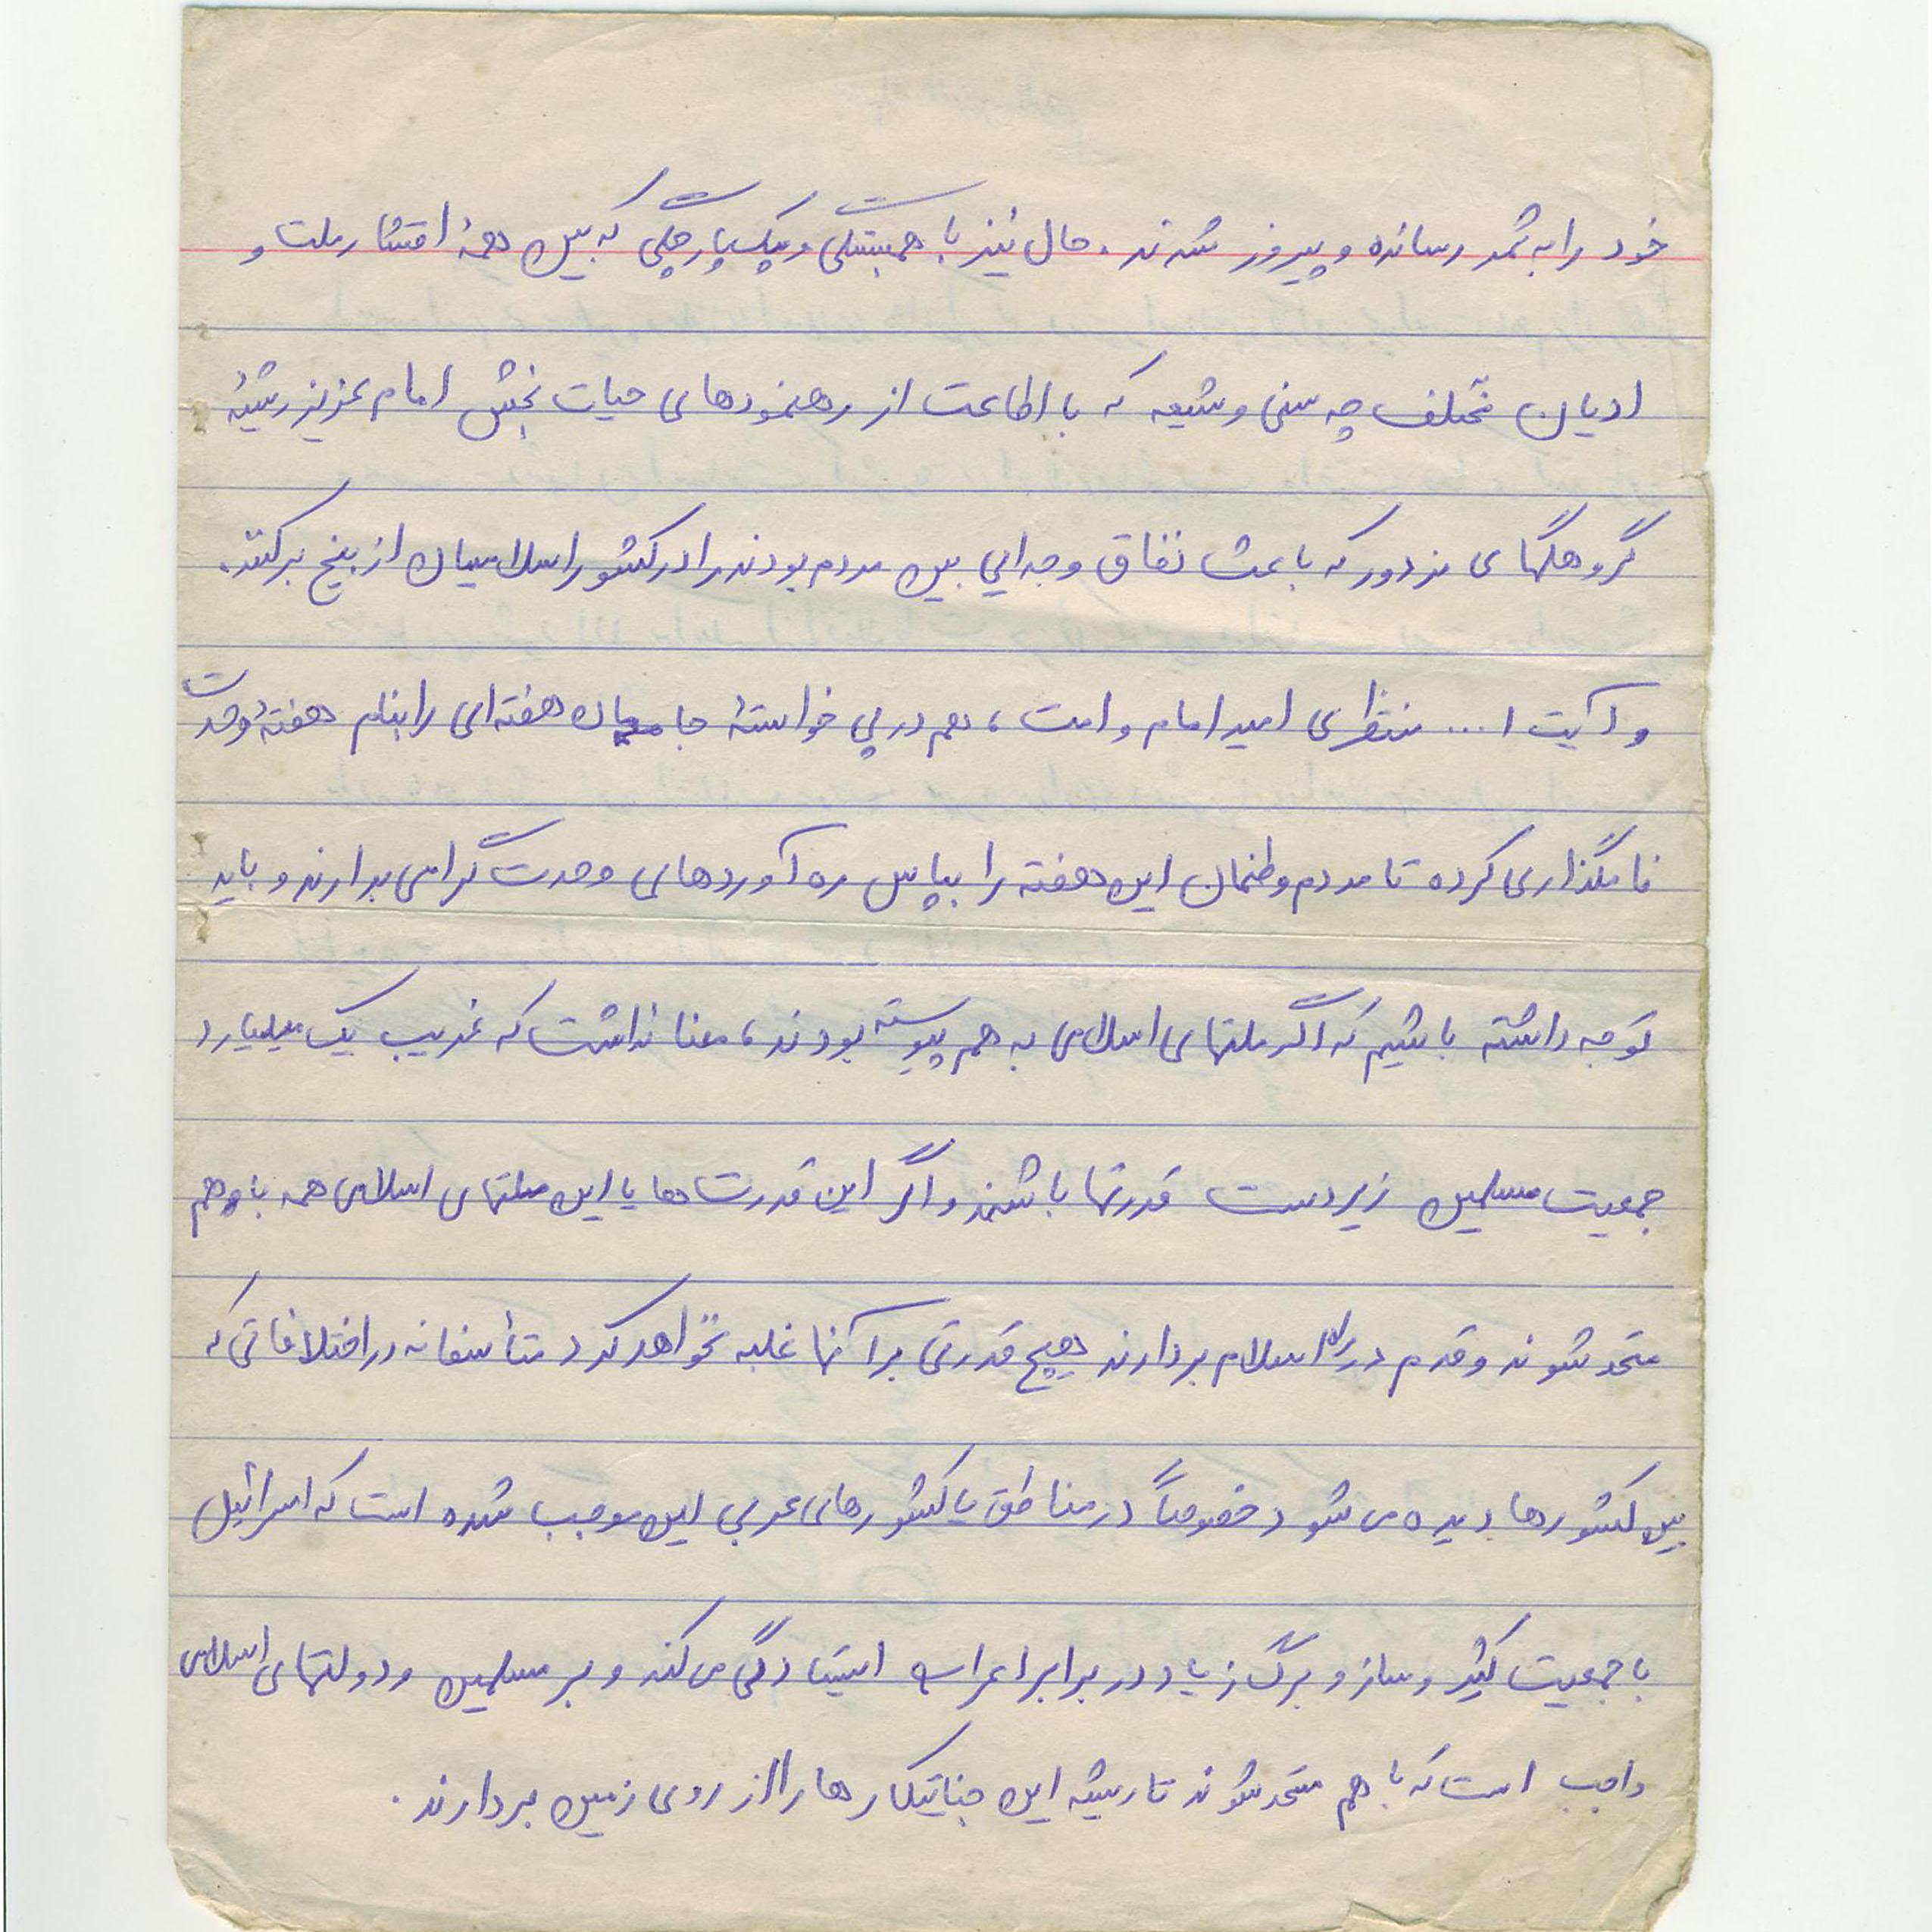 خود را به ثمر رسانده و پیروز شدند. حال نیز با همبستگی و یکپارچگی که بین همهٔ اقشار ملت و
ادیان مختلف چه سنی و شیعه که با اطاعت از رهنمودهای حیات بخش امام عزیز ریشهٔ
گروهکهای مزدور که باعث نفاق و جدایی بین مردم بودند را در کشور اسلامیمان از بیخ برکنند.
و آیت ا... منتظری امید امام و امت، هم در پی خواستهٔ جامعمان هفته‌ای را بنام هفتهٔ وحدت
نامگذاری کرده تا مردم وطنمان این هفته را بپاس ره آوردهای وحدت گرامی بدارند و باید
توجه داشته باشیم که اگر ملتهای اسلامی به هم پیوسته بودند، معنا نداشت که غریب یک میلیارد
جمعیت مسلمین زیردست قدرتها باشند و اگر این قدرت ها یا این ملتهای اسلامی همه با هم
متحد شوند و قدم در راه اسلام بردارند هیچ قدرتی برآنها غلبه نخواهد کرد متأسفانه در اختلافاتی که
بین کشورها دیده می شود خصوصاً در مناطق یا کشورهای عربی این موجب شده است که اسرائیل
با جمعیت کثیر و ساز و برگ زیاد در برابر اعراب ایستادگی می کند و بر مسلمین و دولتهای اسلامی
واجب است که با هم متحد شوند تا ریشه این جنایتکارها را از روی زمین بردارند.